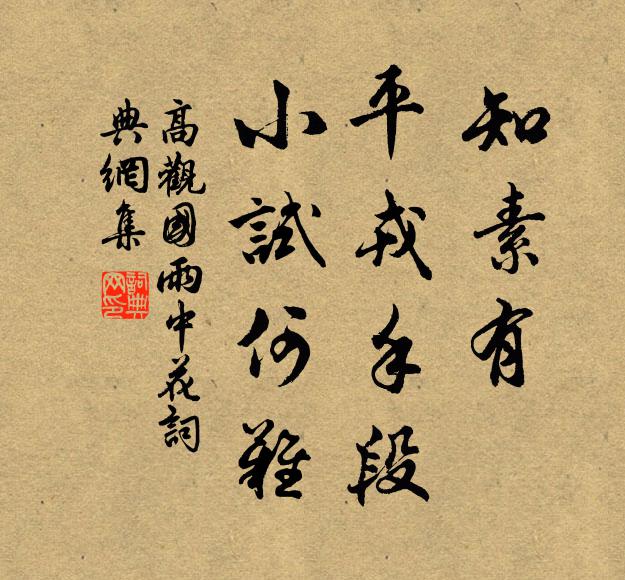 知素有
平戎手段
小試何難
高觀國雨中花詞
典網集
詞典網印